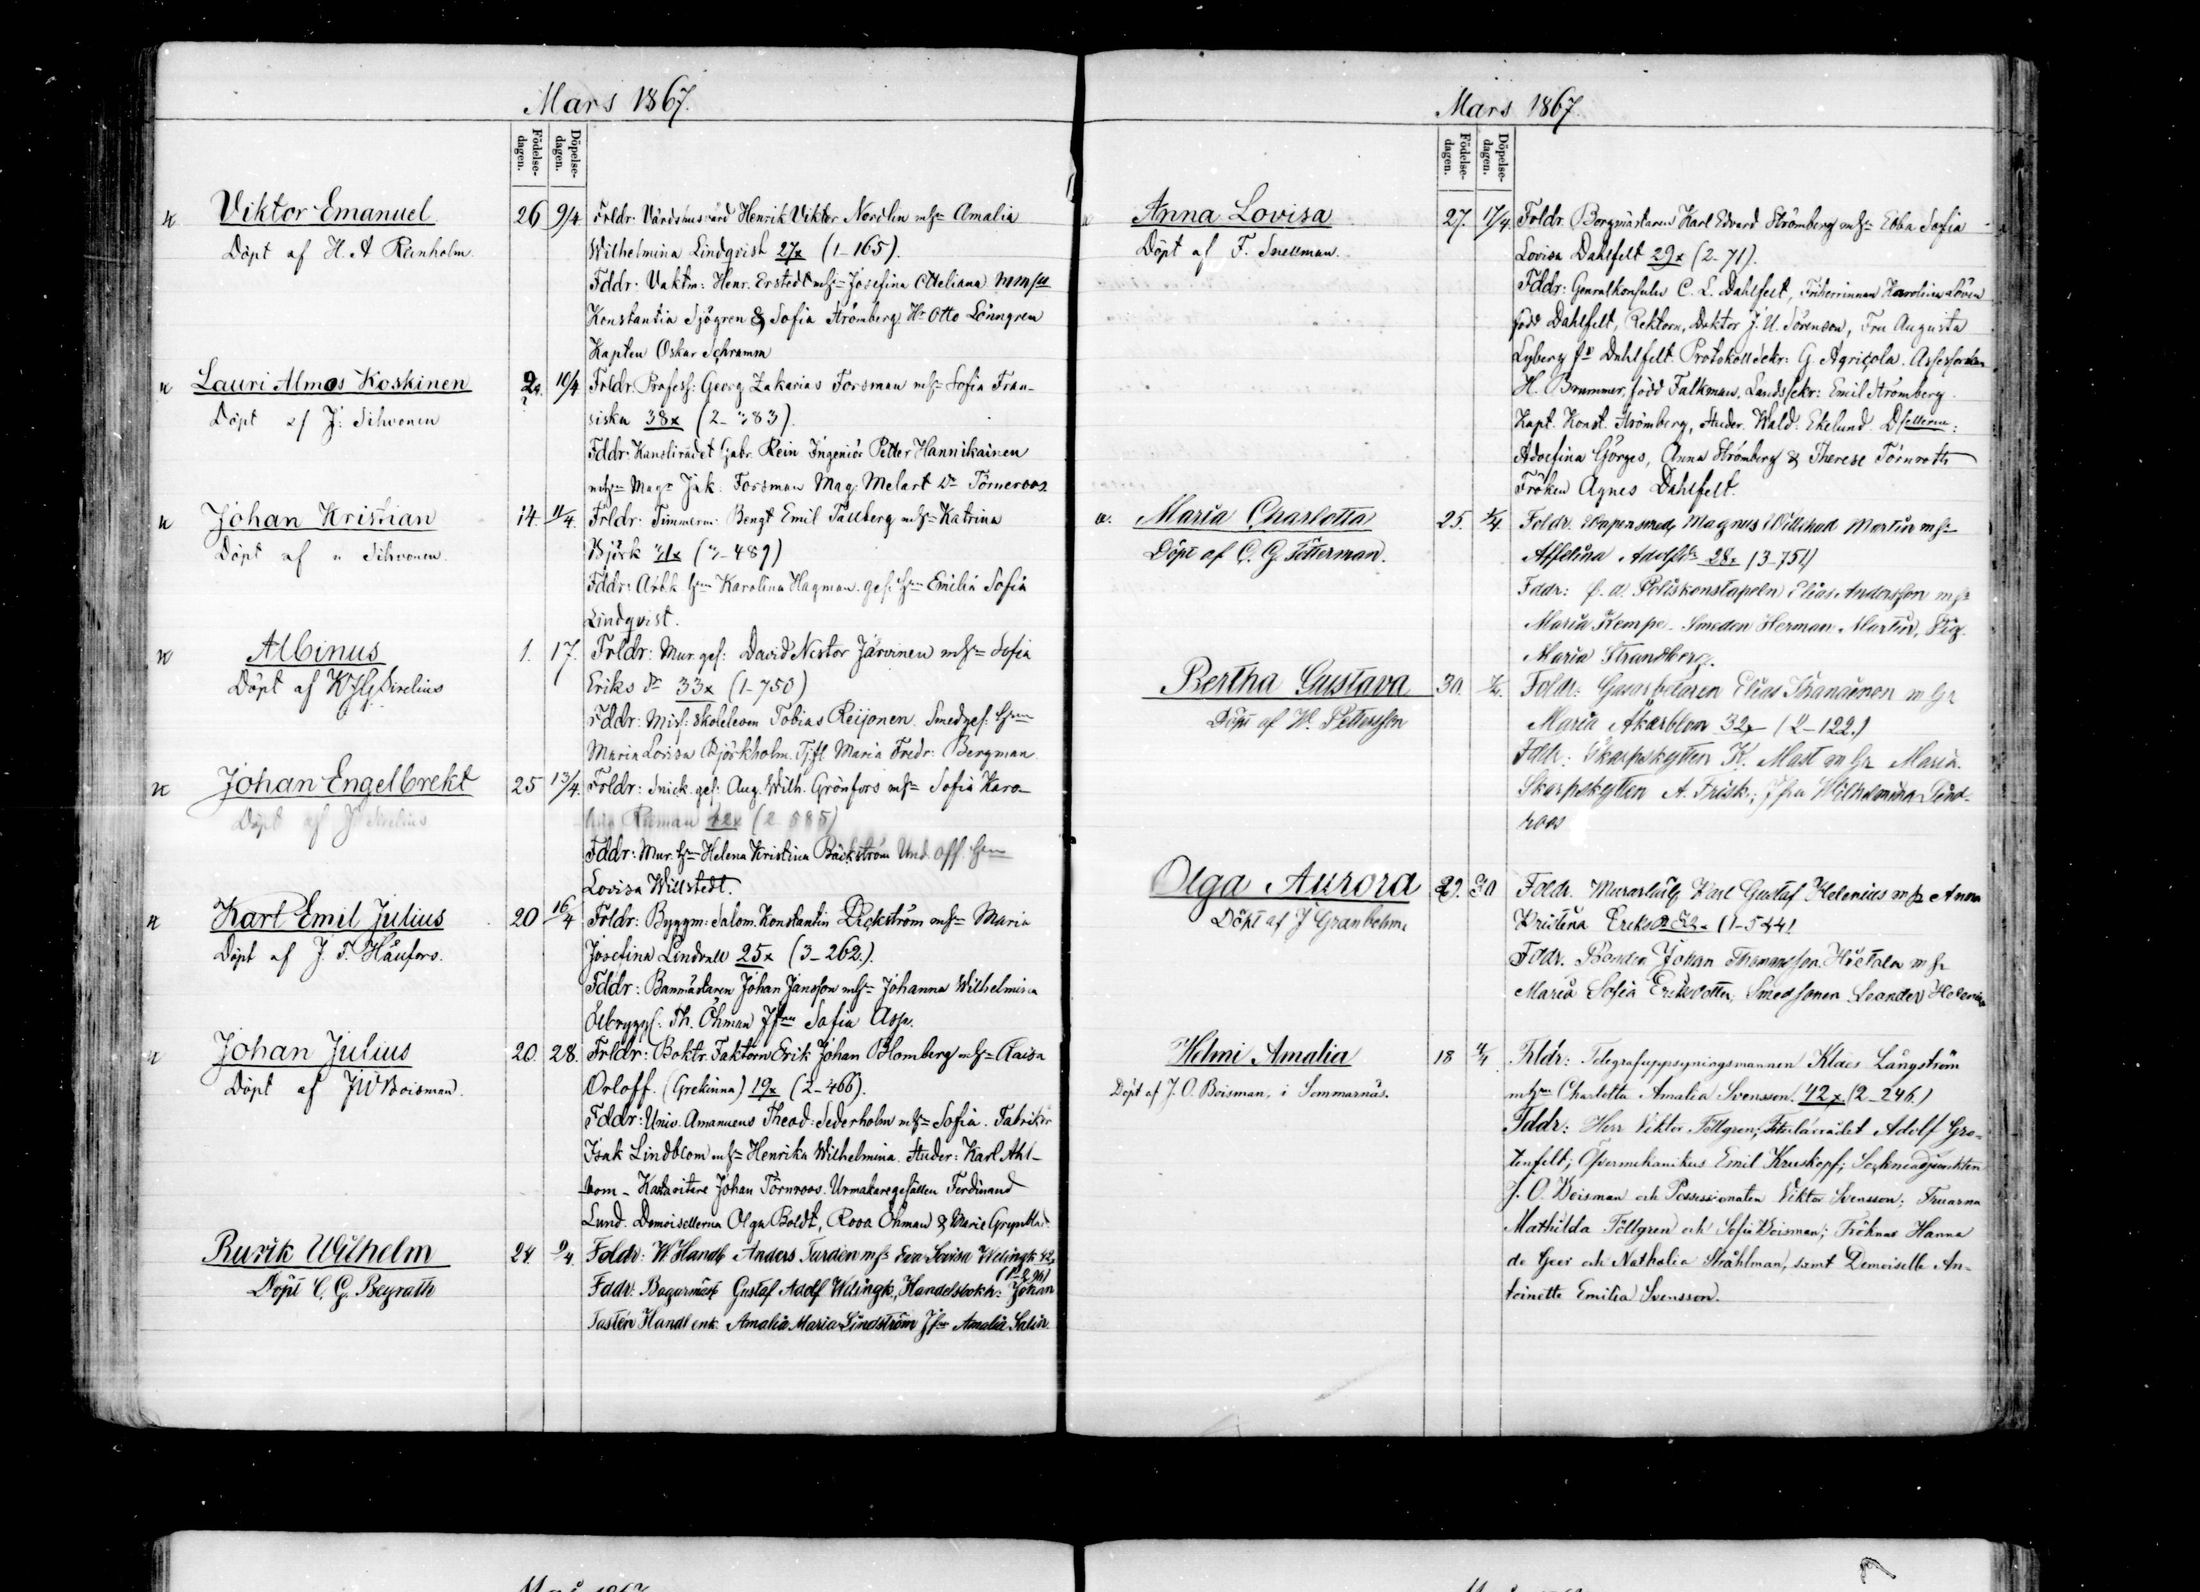 Mars 1867.
Födelse-
dagen.
Döpelse-
dagen.
Viktor Emanuel
Döpt af H. A Reinholm.
26 9/4
Frldr. Värdshusvärd Henrik Viktor Nordlin mhn Amalia
Wilhelmina Lindqvist 27x (1-165).
Fddr. Vaktm: Henr. Erstedt mhn Josefina Otteliana
Konstantia Sjögren & Sofia Strömberg Hr Otto Lönngren
Kapten Oskar Schramm
Lauri Almos Koskinen
Döpt af J. Sihvonen
10/4
Frldr. Profess: Georg Zakarias Forsman mhn Sofia Fran-
siska 38x (2-383).
Fddr. Kanslirådet Gabr. Rein Ingeniör Petter Hannikainen
mhn Mag. Jak. Forsman Mag. Melart Dr Törneroos
Johan Kristian
Döpt af " Sihvonen.
14. 11/4
Frldr. Timmerm. Bengt Emil Tallberg mhn Katrina
Björk 31x (3-489)
Fddr: Arbk. hrn Karolina Hagman. ges. hrn Emilia Sofia
Lindqvist.
Albinus
Döpt af K J G Sirelius
1. 17.
Frldr: Mur. ges: David Nestor Järvinen mhn Sofia
Eriks Dr 33x (1-750)
Fddr: Miss: skoleleven Tobias Reijonen. Smedges: hrn
Maria Lovisa Björkholm. Tjfl Maria Fredr: Bergman
Johan Engelbrekt
Döpt af J Sirelius
25 13/4.
Foldr: Snick. ges: Aug. Wilh. Grönfors mhn Sofia Karo-
lina Reman 42x (2-585)
Fddr: Mur. hrn Helena Kristina Bäckström Und. off. hrn
Lovisa Willstedt.
Karl Emil Julius
Döpt af J. T. Hänfors.
20 16/4
Foldr: Byggm: Salom. Konstantin Dickström mhn Maria
Josefina Lindvall 25x (3-262.).
Fddr: Banmästaren Johan Jansson mhn Johanna Wilhelmina
Th. Öhman Jfru Sofia Asp.
Johan Julius
Döpt af J W Boisman.
20. 28.
Frldr: Boktr. Faktorn Erik Johan Blomberg mhn Raisa
Orloff. (Grekinna) 19x (2-466).
Fddr: Univ. Amanuens Theod: Sederholm mhn Sofia. Fabrikör
Isak Lindblom mhn Henrika Wilhelmina. Studer: Karl Ahl-
bom - Johan Törnroos. Urmakaregesällen Ferdinand
Lund. Demoisellerna Olga Boldt, Rosa Öhman & Marie
Rurik Wilhelm
Döpt C. G. Beyrath
24. 9/4.
Foldr: W. Handl Anders Turdén mhr Eva Lovisa Welingk 42x
Fddr: Bagarmäst Gustaf Adolf Welingk, Handelsbokh: Johan
Tastén Handl enk. Amalia Maria Lindström Jfru Amalia Salin
Mars 1867.
Födelse-
dagen.
Döpelse-
dagen.
Anna Lovisa
Döpt af F. Snellman.
27. 17/4.
Foldr. Borgmästaren Karl Edvard Strömberg mhn Ebba Sofia
Lovisa Dahlfelt 29x (2-71).
Fddr: Genralkonsuln C. L. Dahlfelt, Friherrinnan Karolina
född Dahlfelt, Rektorn, Doktor J. U. Sörenson, Fru Augusta
Lyberg fd Dahlfelt. Protokollsekr: G. Agricola.
H. Brummer, född Falkman, Landssekr: Emil Strömberg.
Kapt. Konst. Strömberg, Studer. Wald. Ekelund. Dsellerna:
Adolfina Görges, Anna Strömberg & Therese Törnroth
Fröken Agnes Dahlfelt.
Maria Charlotta
Döpt af C. G. Tötterman.
25.
Foldr. Wapensmed Magnus Willehad Martin mhr
28x (3-751)
Fddr: f. d. Poliskonstapeln Elias Andersson mhr
Maria Kempe. Smeden Herman Martin, Pig.
Maria Strandberg.
Bertha Gustava
Döpt af W. Pettersson
30.
Foldr: Gasarbetaren Elias mhr
Maria Åkerblom 32x (2-122.)
Fddr: Skarpskytten K. Mast mhr Maria.
Skarpskytten A. Frisk; Jfru Wilhelmina Lind-
roos
Olga Aurora
Döpt af J Granholm
29. 30
Foldr. Murarlärl. Karl Gustaf Helenius mhr Anna
Kristina
Fddr. Bonden Johan Thomasson Hietala mhr
Maria Sofia Eriksdotter, Smedsonen Leander Helenius
Helmi Amalia
Döpt af J. O. Boisman, i Sommarnäs.
18
Frldr: Telegrafuppsyningsmannen Klaes Långström
mhrn Charlotta Amalia Svensson. 42x. (2-246.)
Fddr: Herr Viktor Töllgren; Titulärrådet Adolf Gro-
tenfelt; Öfvermekanikus Emil Kruskopf; Sockneadjunkten
J. O. Boisman och Possessionaten Viktor Svensson; Fruarna
Mathilda Töllgren och Sofie Boisman; Fröknar Hanna
de Geer och Nathalia Stråhlman, samt Demoiselle An-
toinette Emilia Svensson.